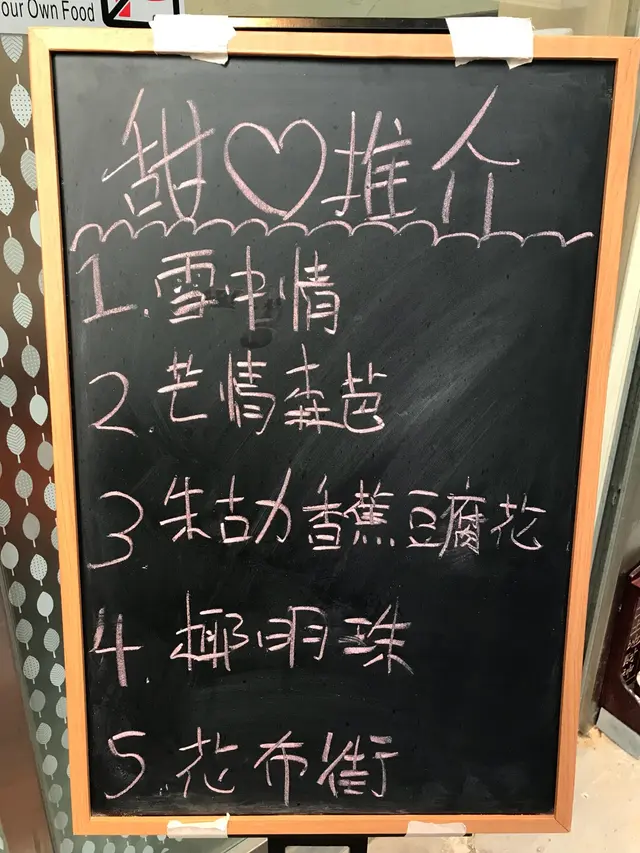 our Own Food
甜♡推介
1. 雪中情
2. 芒情森芭
3 朱古力香蕉豆腐花
4. 椰明珠
5. 花布街